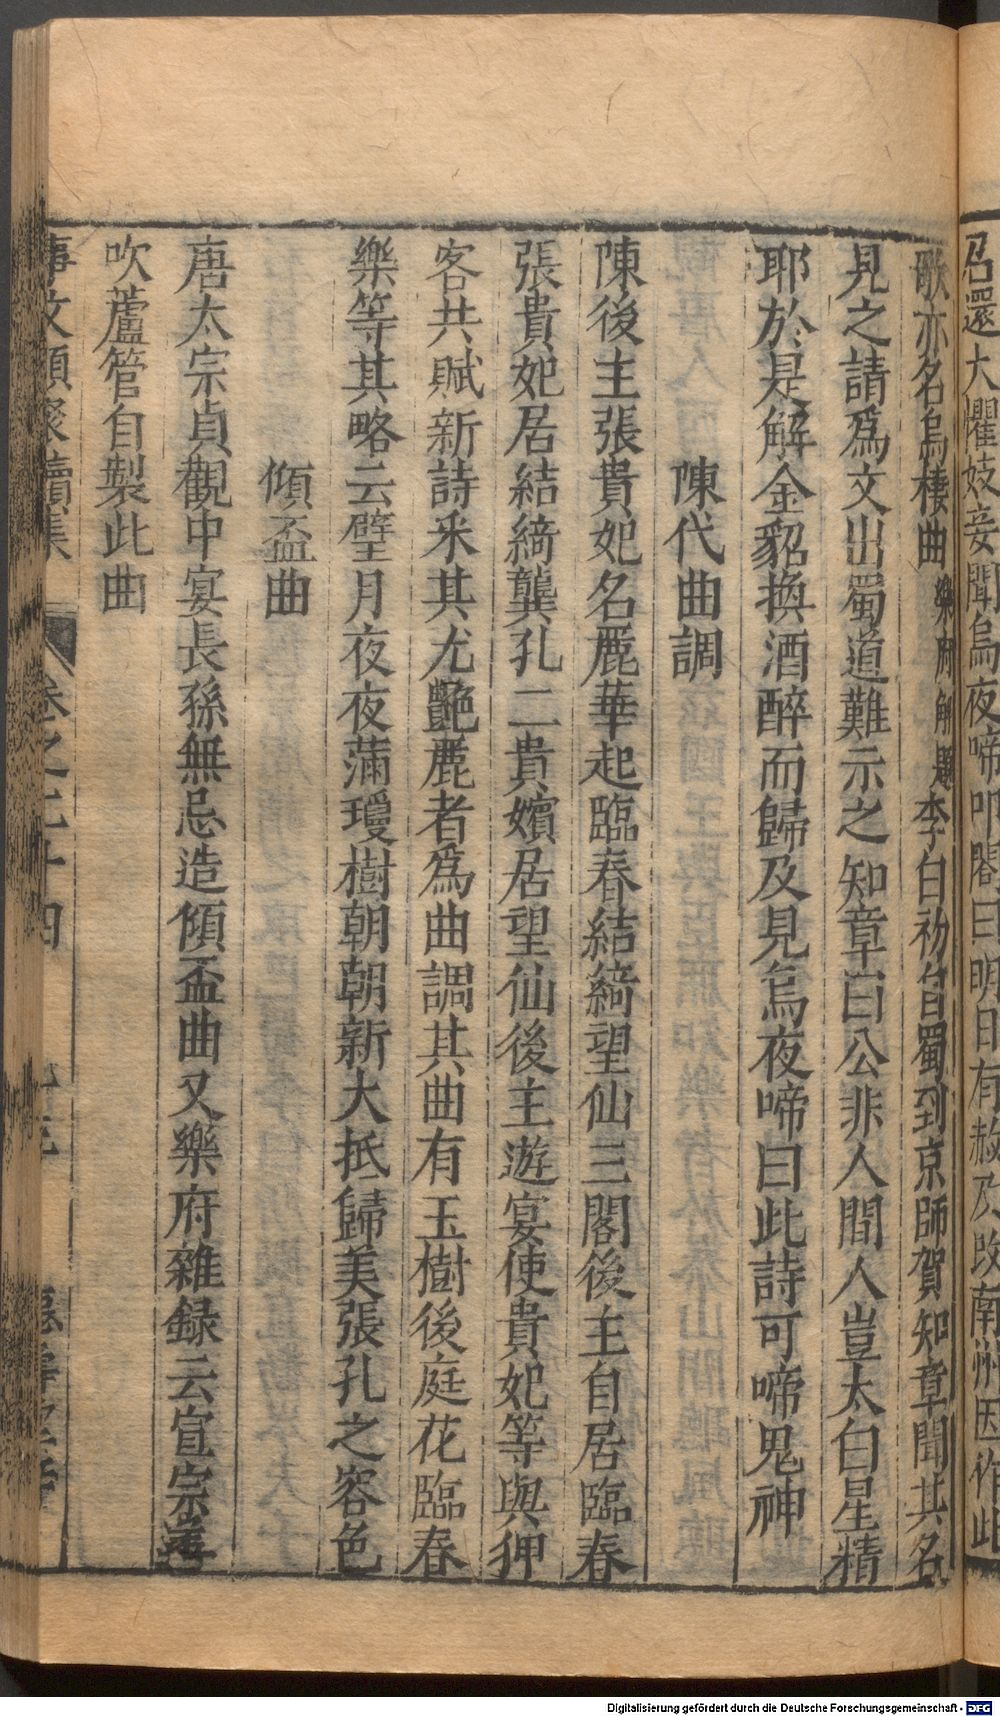 召還大懼妓妾聞烏夜啼叩閤曰明日有赦及改南州因作此
歌亦名烏棲曲樂府解題李白初自蜀到京師賀知章聞其名
見之請爲文出蜀道難示之知章曰公非人間人豈太白星精
耶於是解金貂換酒醉而歸及見烏夜啼曰此詩可啼鬼神
陳代曲調
陳後主張貴妃名麗華起臨春結綺望仙三閣後主自居臨春
張貴妃居結綺龔孔二貴嬪居望仙後主遊宴使貴妃等與狎
客共賦新詩采其尤艷麗者爲曲調其曲有玉樹後庭花臨春
樂等其略云璧月夜夜滿瓊樹朝朝新大抵歸美張孔之容色
傾盃曲
唐太宗貞觀中宴長孫無忌造傾盃曲又樂府雜録云宣宗善
吹蘆管自製此曲
事文類聚續集 卷之二十四
Digitalisierung gefördert durch die Deutsche Forschungsgemeinschaft - DFG